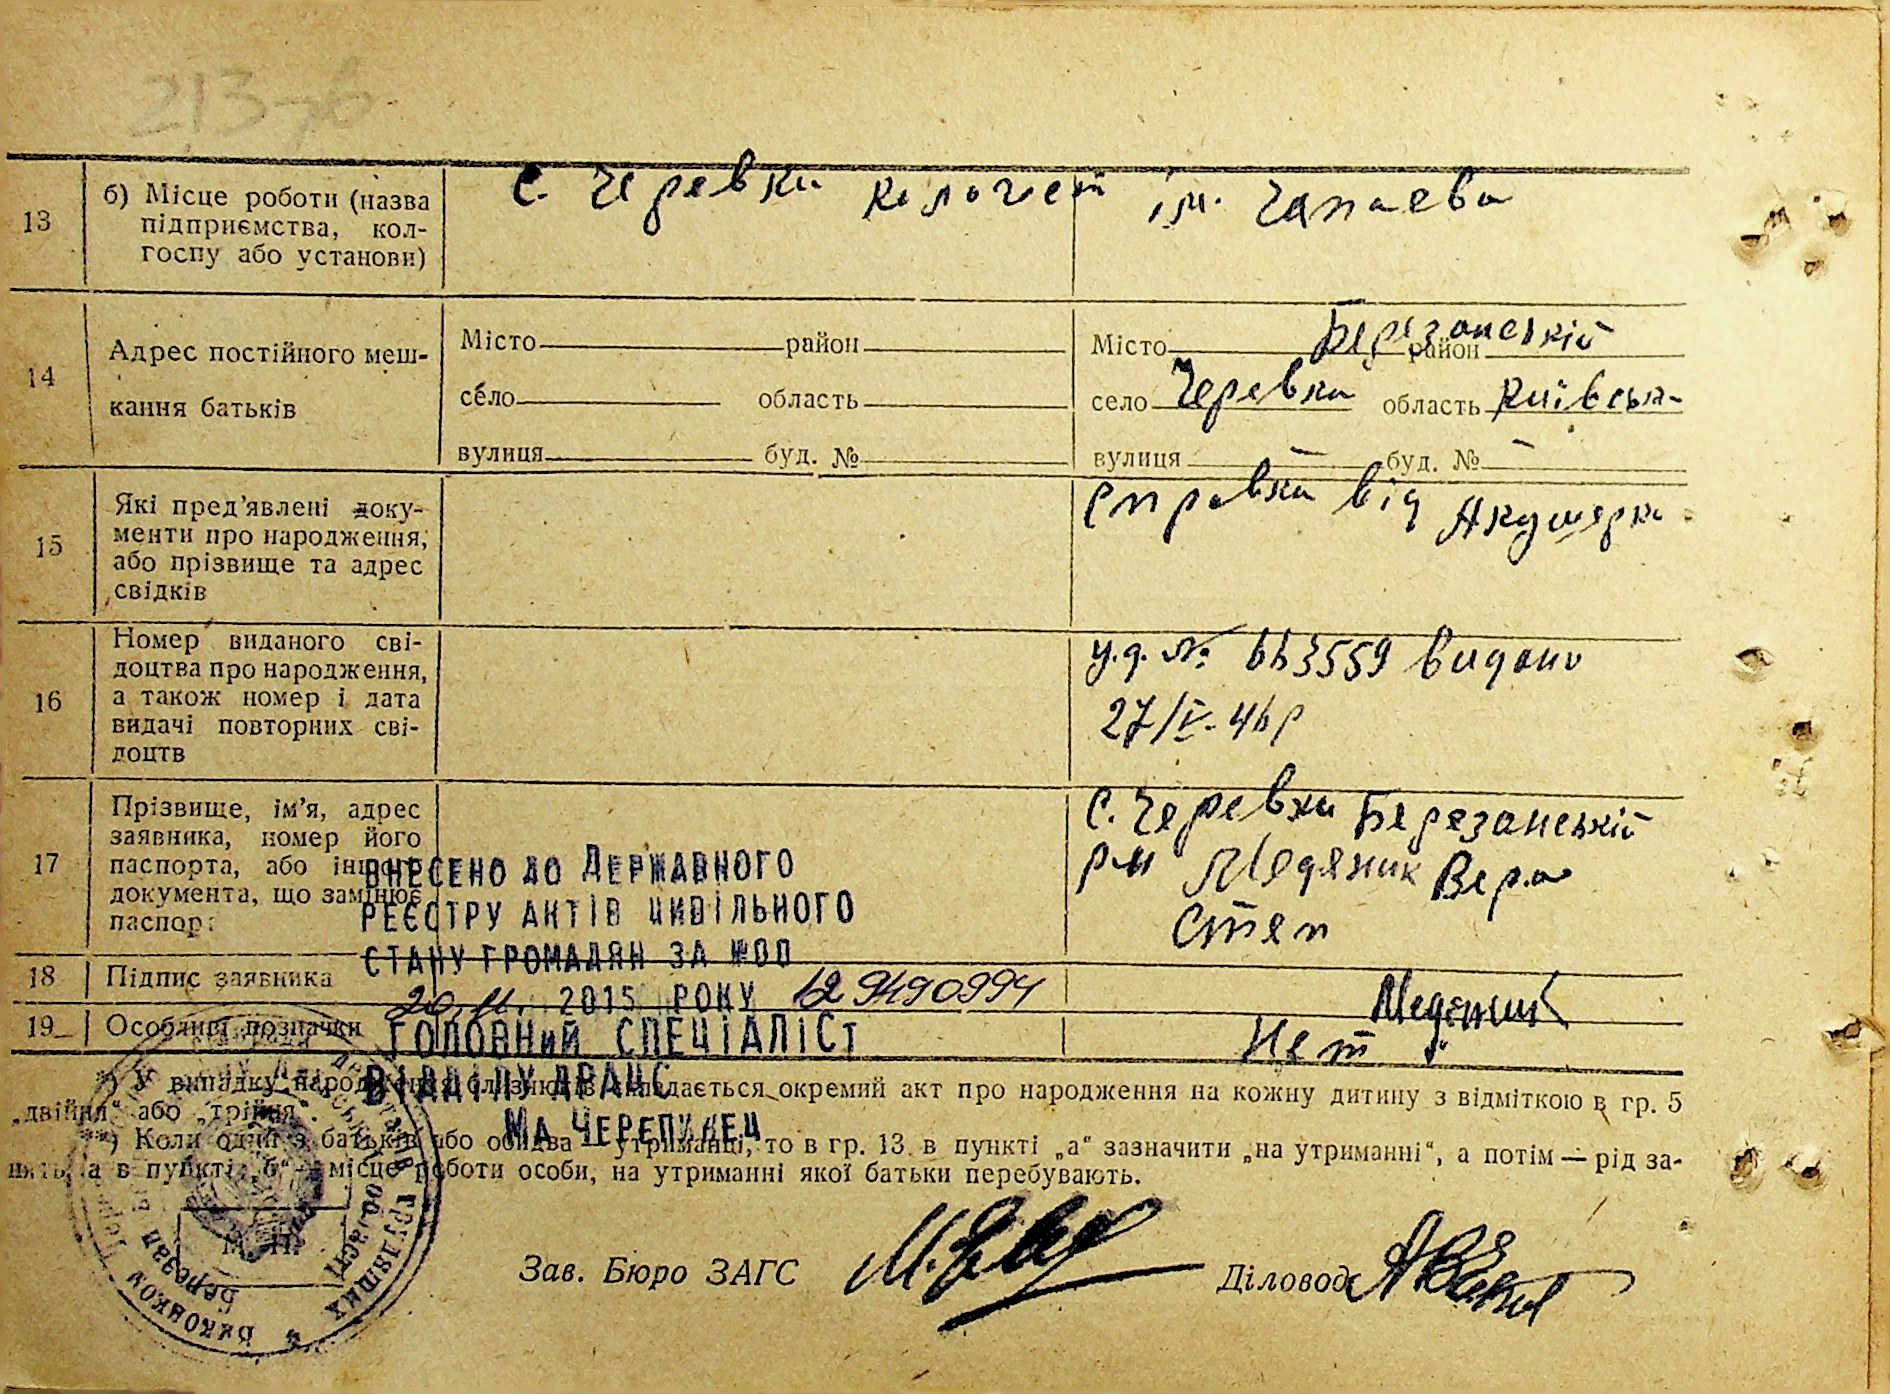 213
13
б) Місце роботи (назва
підприємства, кол-
госпу або установи)
с. Черевки колгосп ім. Чапаєва
14
Адрес постійного меш-
кання батьків
Місто район
село область
вулиця буд. №
Місто Березанський район
село Черевки область Київська
вулиця — буд. № —
15
Які пред'явлені доку-
менти про народження,
або прізвище та адрес
свідків
справка від Акушерки
16
Номер виданого сві-
доцтва про народження,
а також номер і дата
видачі повторних сві-
доцтв
у.д. № 663559 видано
27/V-46р
17
Прізвище, ім'я, адрес
заявника, номер його
паспорта, або іншого
документа, що замінює
паспорт
с. Черевки Березанський
р-н Медяник Вера
Степ
ВНЕСЕНО ДО ДЕРЖАВНОГО
РЕЄСТРУ АКТІВ ЦИВІЛЬНОГО
СТАНУ ГРОМАДЯН ЗА №00
20.11. 2015 РОКУ
ГОЛОВНИЙ СПЕЦІАЛІСТ
ВІДДІЛУ ДРАЦС
МА ЧЕРЕПИНЕЦ
18
Підпис заявника
19
Особливі позначки
Нет
*) У випадку народження близнюків складається окремий акт про народження на кожну дитину з відміткою в гр. 5
„двійня“ або „трійня“.
**) Коли один з батьків або обидва — утриманці, то в гр. 13 в пункті „а“ зазначити „на утриманні“, а потім — рід за-
нять, а в пункті „б“ — місце роботи особи, на утриманні якої батьки перебувають.
М. П.
Зав. Бюро ЗАГС
Діловод